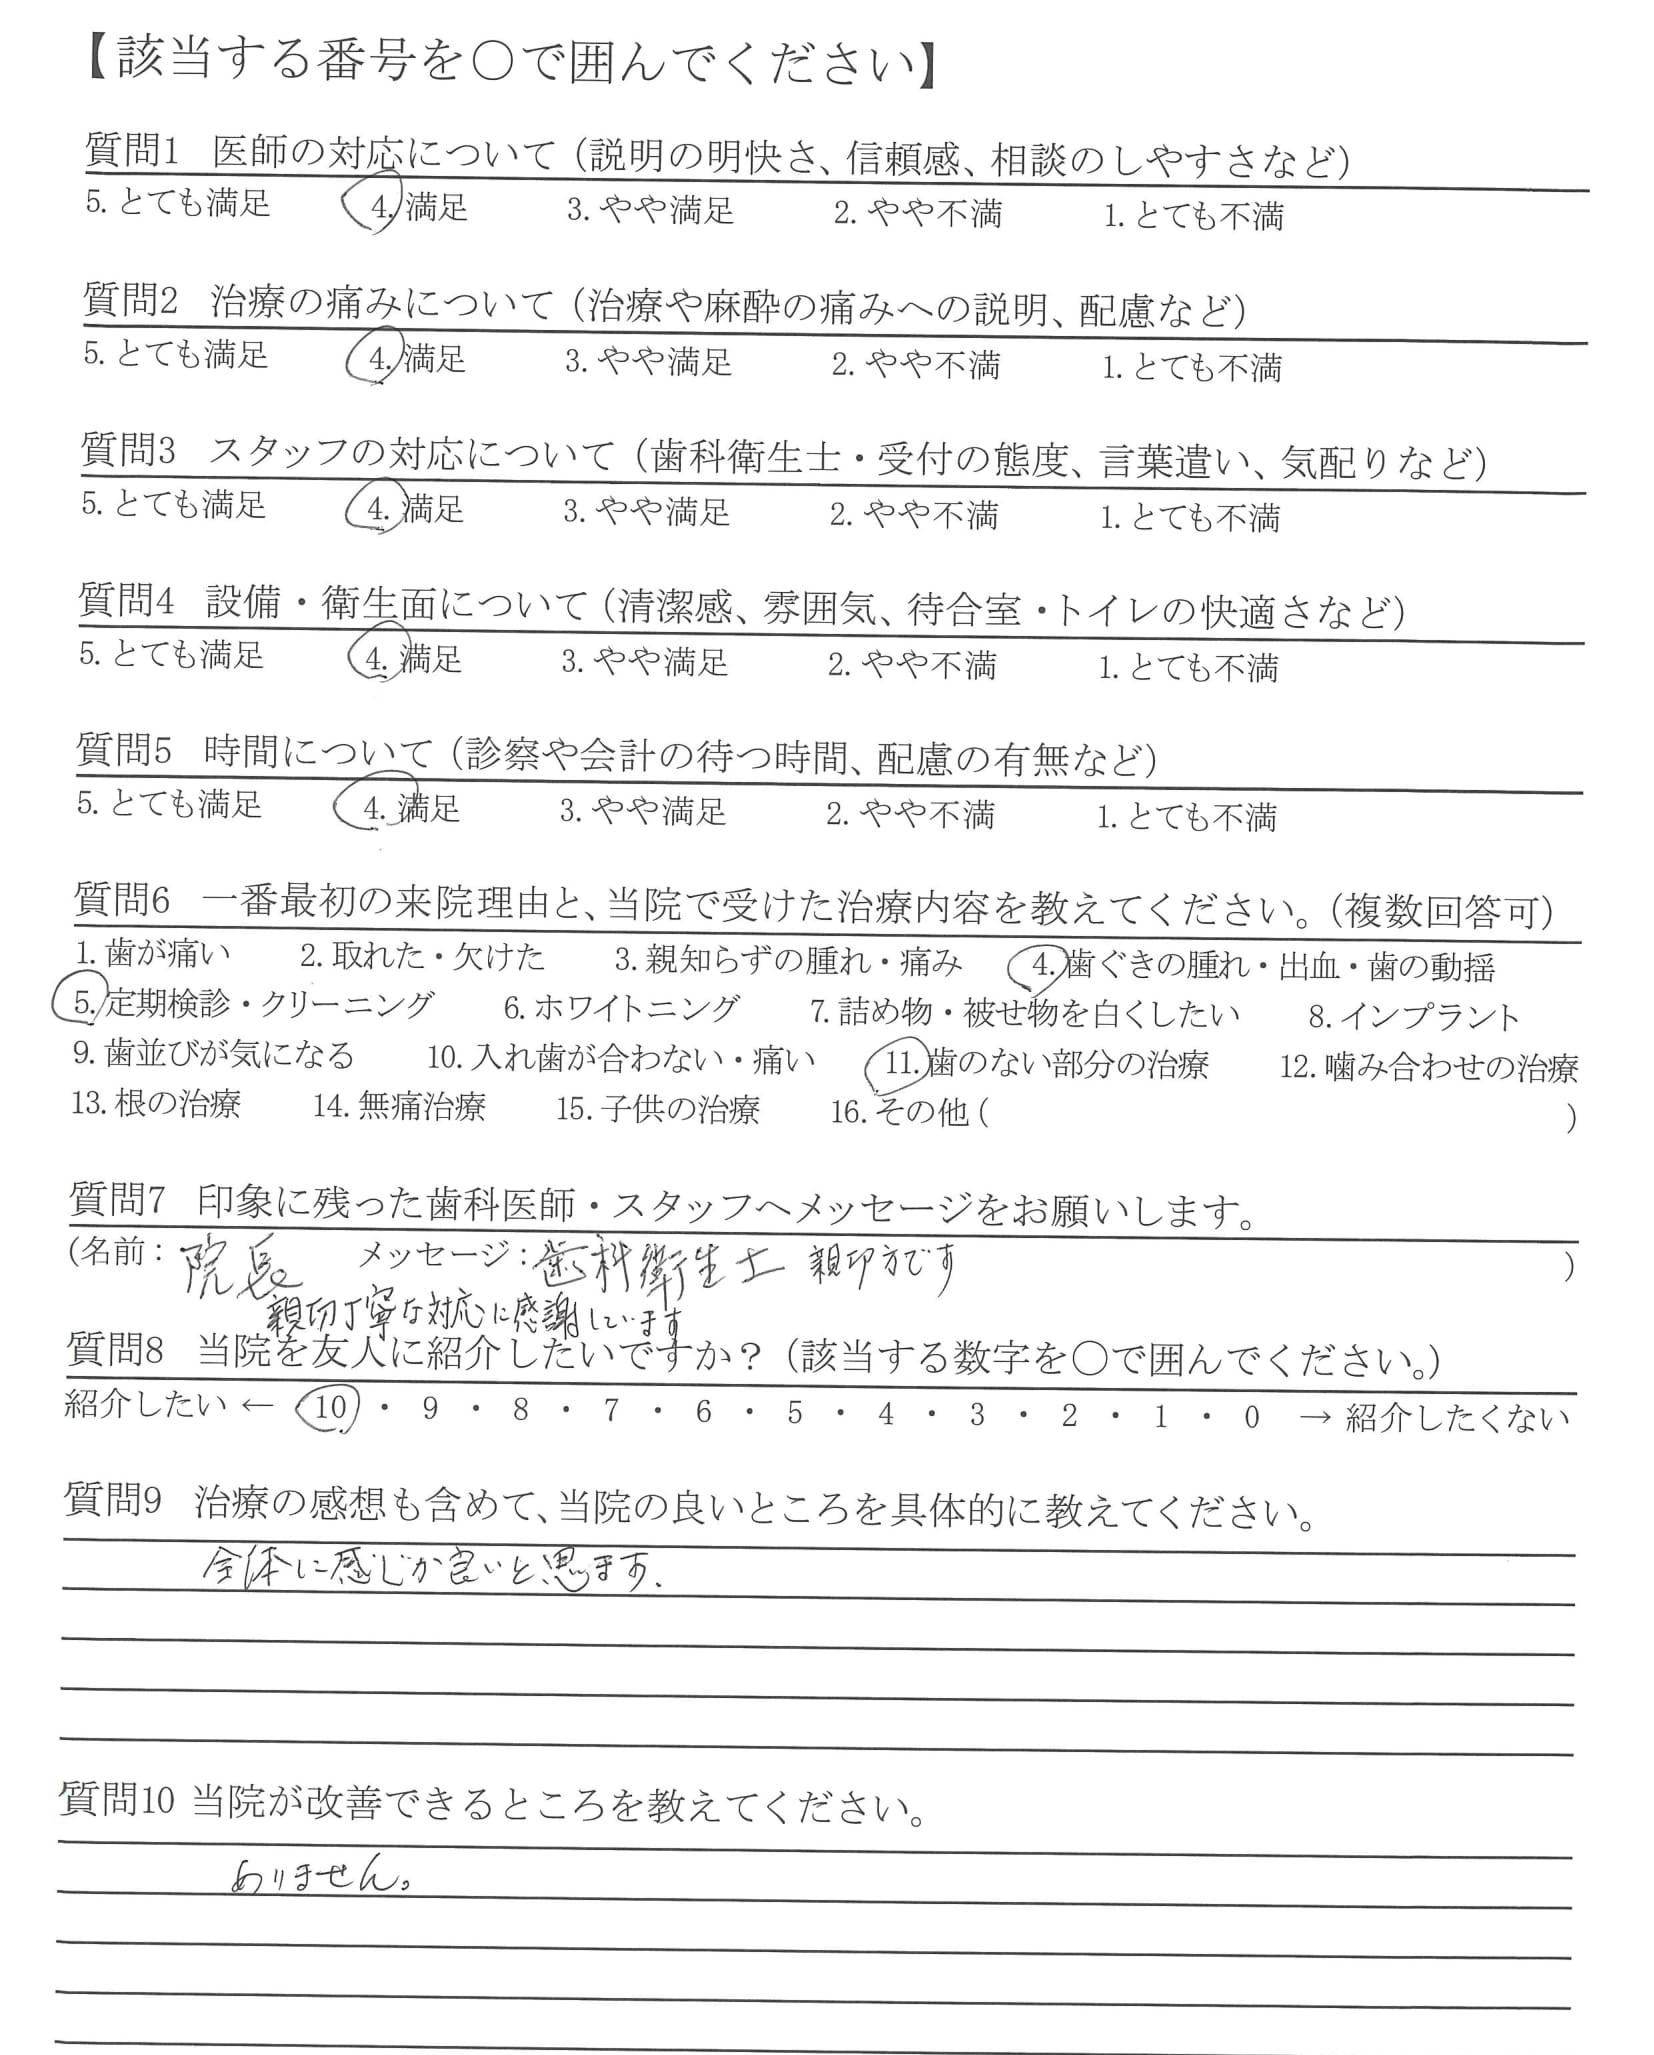 【該当する番号を○で囲んでください】
質問1 医師の対応について（説明の明快さ、信頼感、相談のしやすさなど）
5. とても満足 4. 満足 3. やや満足 2. やや不満 1. とても不満
質問2 治療の痛みについて（治療や麻酔の痛みへの説明、配慮など）
5. とても満足 4. 満足 3. やや満足 2. やや不満 1. とても不満
質問3 スタッフの対応について（歯科衛生士・受付の態度、言葉遣い、気配りなど）
5. とても満足 4. 満足 3. やや満足 2. やや不満 1. とても不満
質問4 設備・衛生面について（清潔感、雰囲気、待合室・トイレの快適さなど）
5. とても満足 4. 満足 3. やや満足 2. やや不満 1. とても不満
質問5 時間について（診察や会計の待つ時間、配慮の有無など）
5. とても満足 4. 満足 3. やや満足 2. やや不満 1. とても不満
質問6 一番最初の来院理由と、当院で受けた治療内容を教えてください。（複数回答可）
1. 歯が痛い 2. 取れた・欠けた 3. 親知らずの腫れ・痛み 4. 歯ぐきの腫れ・出血・歯の動揺
5. 定期検診・クリーニング 6. ホワイトニング 7. 詰め物・被せ物を白くしたい 8. インプラント
9. 歯並びが気になる 10. 入れ歯が合わない・痛い 11. 歯のない部分の治療 12. 噛み合わせの治療
13. 根の治療 14. 無痛治療 15. 子供の治療 16. その他（ ）
質問7 印象に残った歯科医師・スタッフへメッセージをお願いします。
（名前：院長 メッセージ：歯科衛生士 親切方です ）
親切丁寧な対応に感謝しています
質問8 当院を友人に紹介したいですか？（該当する数字を○で囲んでください。）
紹介したい ← 10 ・ 9 ・ 8 ・ 7 ・ 6 ・ 5 ・ 4 ・ 3 ・ 2 ・ 1 ・ 0 → 紹介したくない
質問9 治療の感想も含めて、当院の良いところを具体的に教えてください。
全体に感じが良いと思ます.
質問10 当院が改善できるところを教えてください。
ありません。